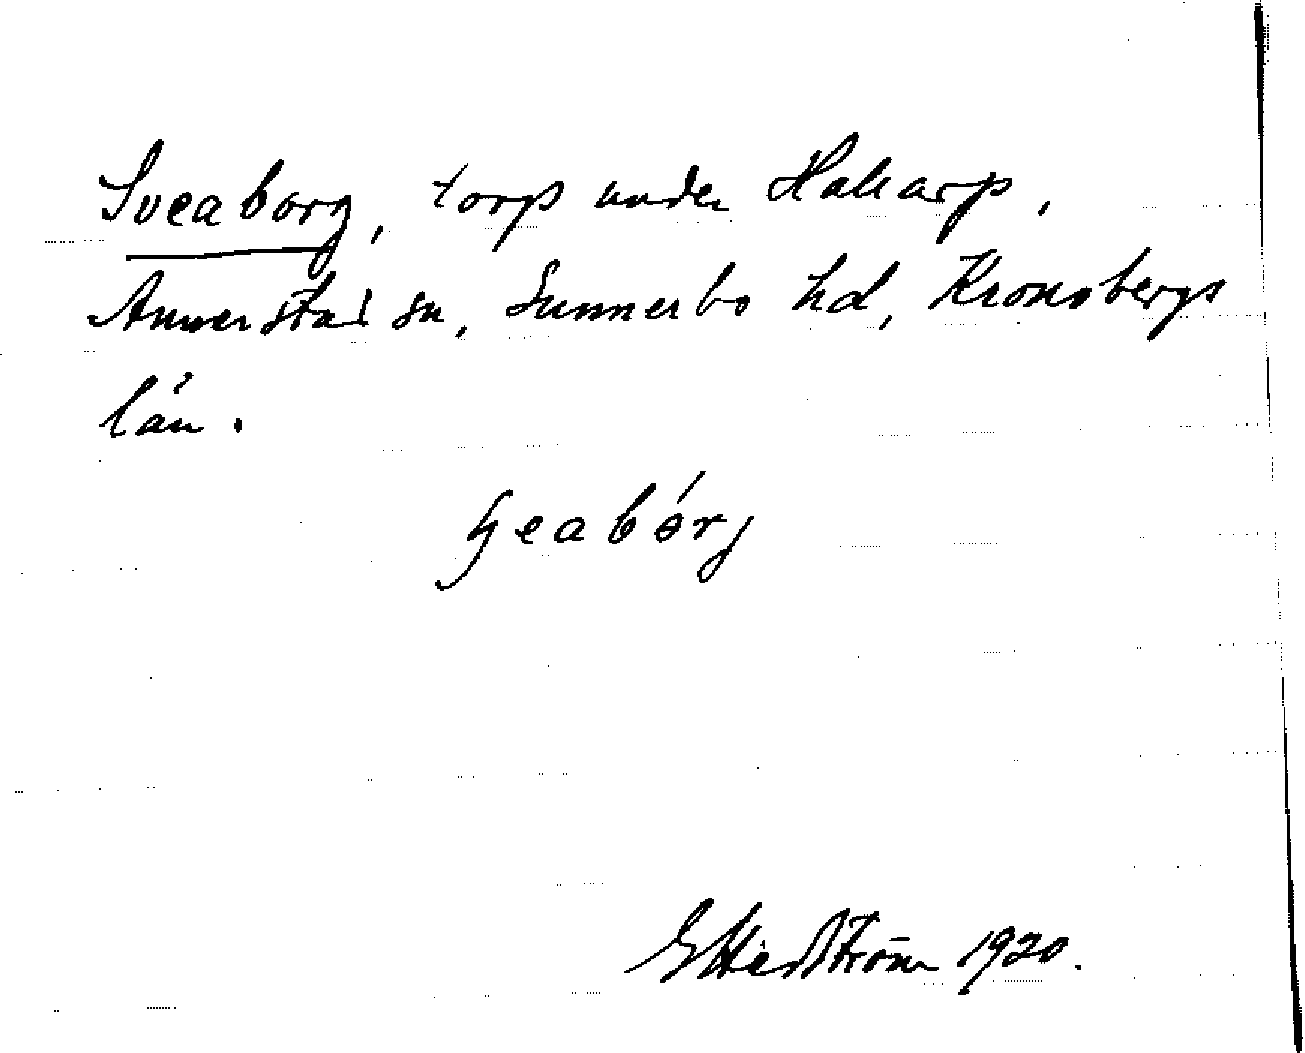 Sveaborg, torp under Hakarp,
Annerstad sn, Sunnerbo hd, Kronobergs
län.
sveabórg
E Hedström 1920.